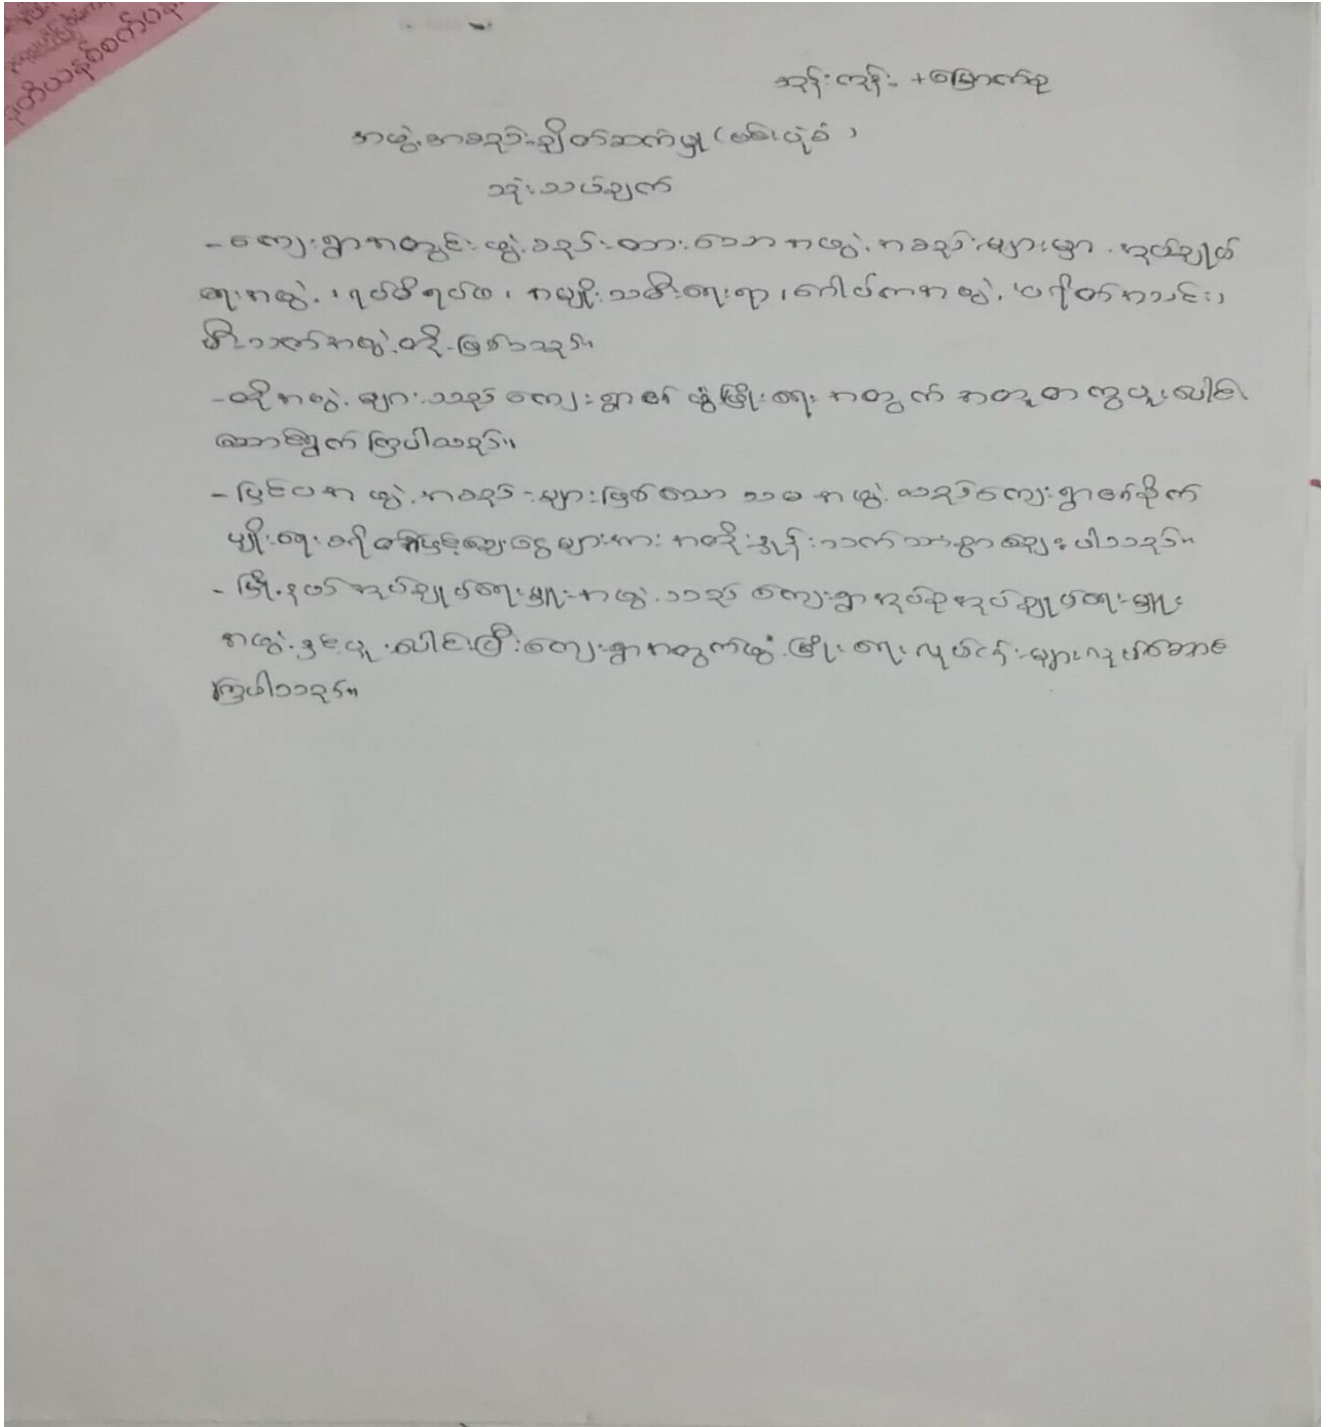 အုန်းကုန်း + မြောက်စု
အဖွဲ့အစည်းချိတ်ဆက်မှု (မစ်းပုံစံ)
သုံးသပ်ချက်
- ကျေးရွာအတွင်းဖွဲ့စည်းထားသောအဖွဲ့အစည်းများမှာ အုပ်ချုပ်
ရေးအဖွဲ့၊ ရပ်မိရပ်ဖ၊ အမျိုးသမီးရေးရာ၊ ဂေါပကအဖွဲ့၊ ပရိတ်အသင်း၊
မီးသတ်အဖွဲ့တို့ဖြစ်သည်။
- ထိုအဖွဲ့များသည် ကျေးရွာဖွံ့ဖြိုးရေးအတွက် အတူတကွပူးပေါင်း
ဆောင်ရွက်ကြပါသည်။
- ပြင်ပအဖွဲ့အစည်းများဖြစ်သော သမအဖွဲ့သည်ကျေးရွာစိုက်
ပျိုးရေးစရိတ်ချေးငွေများအား အတိုးနှုန်းသက်သာစွာချေးပါသည်။
- မြို့နယ်အုပ်ချုပ်ရေးမှူးအဖွဲ့သည် ကျေးရွာအုပ်စုအုပ်ချုပ်ရေးမှူး
အဖွဲ့နှင့်ပူးပေါင်းပြီးကျေးရွာအတွက်ဖွံ့ဖြိုးရေးလုပ်ငန်းများလုပ်ဆောင်
ကြပါသည်။